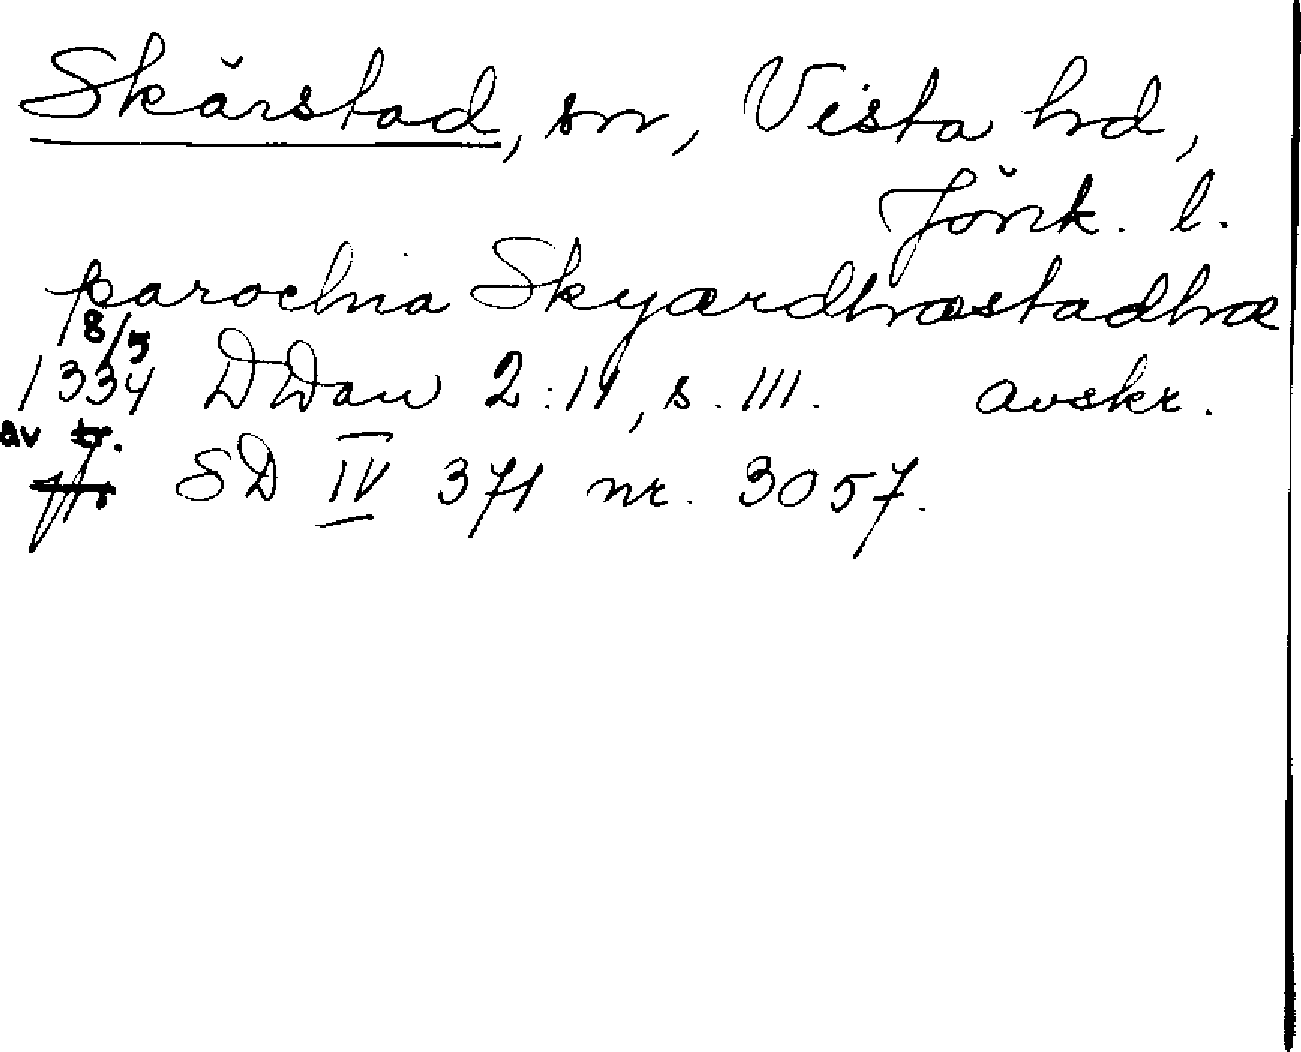 Skärstad, sn, Vista hd,
Jönk. l.
parochia Skyærdhæstadhæ
8/5
1334 DDan 2:11, s. 111. avskr.
av tr.
SD IV 371 nr. 3057.